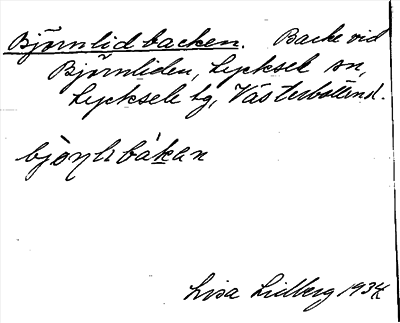 Björnlidbacken. Backe vid
Björnliden, Lycksele sn,
Lycksele tg, Västerbottend.
Lisa Lidberg 1934